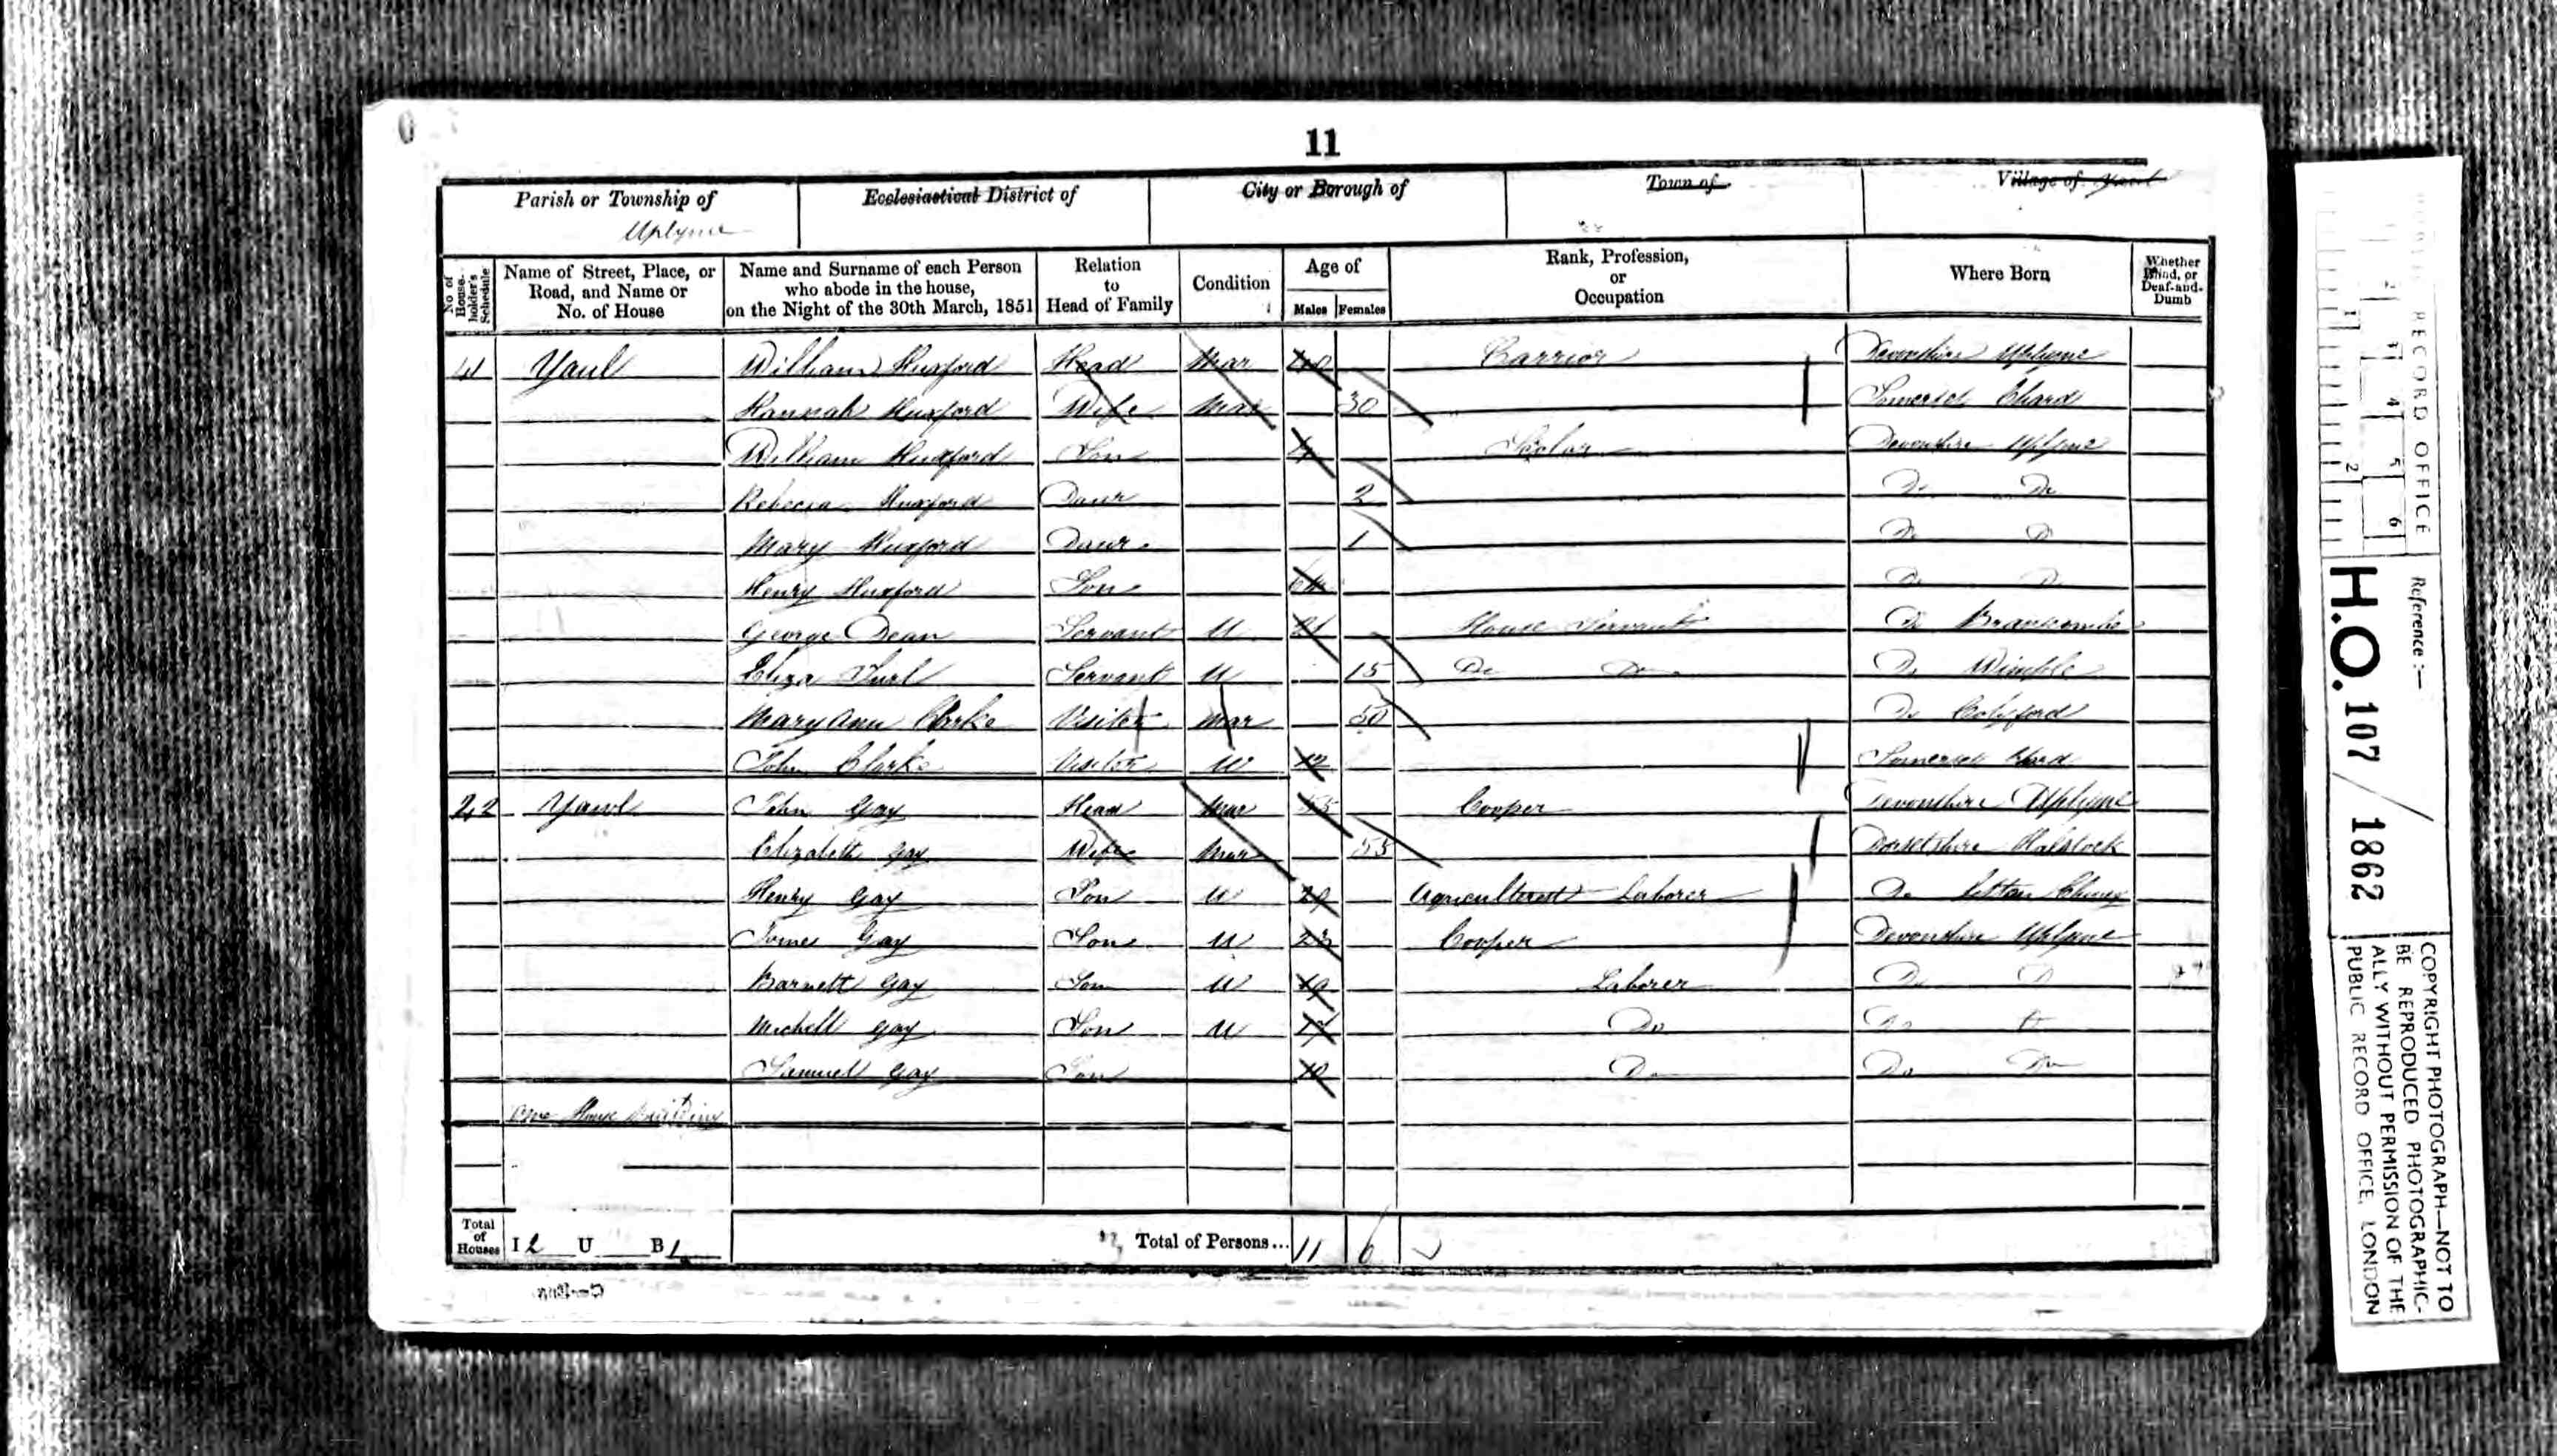 11
Parish or Township of Ecclesiastical District of City or Borough of Town of Village of
Uplyme
No. of House-holder's Schedule Name of Street, Place, or Road, and Name or No. of House Name and Surname of each Person who abode in the house, on the Night of the 30th March, 1851 Relation to Head of Family Condition Age of Males Females Rank, Profession, or Occupation Where Born Whether Blind, or Deaf-and-Dumb
41 Yaul William Huxford Head Mar 40 Carrior Devonshire Uplyme
Hannah Huxford Wife Mar 30 Somerset Chard
William Huxford Son 4 Scolar Devonshire Uplyme
Rebecca Huxford Daur 2 Do Do
Mary Huxford Daur 1 Do Do
Henry Huxford Son Do Do
George Dean Servant U 21 House Servant Do Branscombe
Eliza Turl Servant U 15 Do Do Do Wimple
Mary Ann Clarke Visiter Mar 50 Do Colyford
John Clarke Visitor U 12 Somerset Chard
42 Yawl John Gay Head Mar 55 Cooper Devonshire Uplyme
Elizabeth Gay Wife Mar 55 Dorsetshire Halstock
Henry Gay Son U 29 Agricultural Laborer Do Litton Cheney
James Gay Son U 23 Cooper Devonshire Uplyme
Barnett Gay Son U 19 Laborer Do Do
Michell Gay Son U 17 Do Do Do
Samuel Gay Son 10 Do Do Do
One House Building
Total of Houses I 2 U B 1 Total of Persons... 11 6
RECORD OFFICE
Reference :—
H.O. 107 / 1862
COPYRIGHT PHOTOGRAPH—NOT TO
BE REPRODUCED PHOTOGRAPHIC-
ALLY WITHOUT PERMISSION OF THE
PUBLIC RECORD OFFICE, LONDON